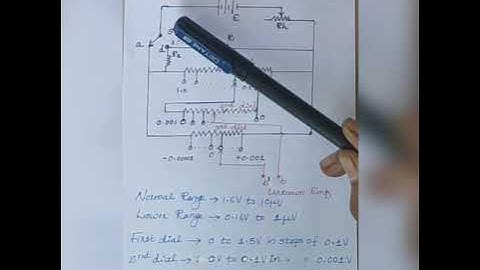 E
Rh
S
a
d
R2
1.5
0.001
0
-0.0001 0 +0.001
Unknown Emf
Normal Range → 1.6V to 10μV
Lower Range → 0.16V to 1μV
First dial → 0 to 1.5V in steps of 0.1V
2nd dial → 0V to 0.1V in " = 0.001V